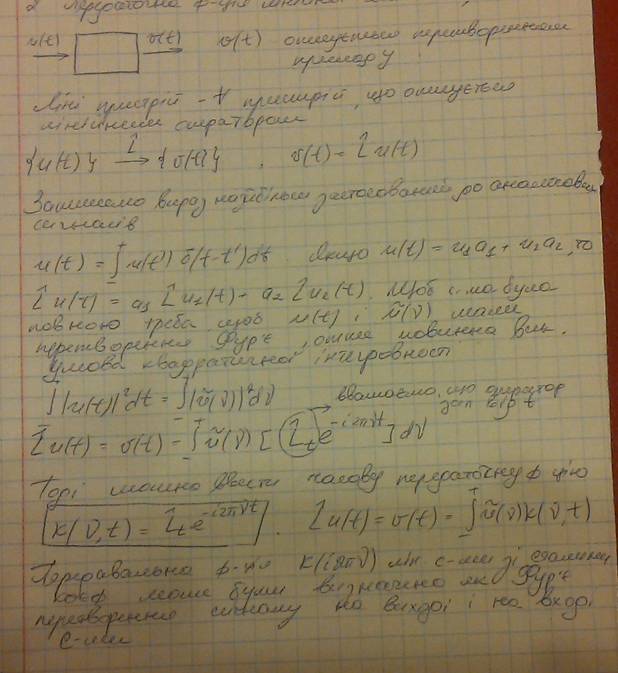 2 Передаточна ф-ція лінійної
u(t) v(t) v(t) описується перетворенням
приладу
Ліні пристрій - ∀ пристрій, що описується
лінійним оператором
{u(t)} L̂→ {v(t)} , v(t) = L̂ u(t)
Запишемо вираз найбільш застосований до аналогових
сигналів
u(t) = ∫ u(t') δ(t-t') dt . Якщо u(t) = u₁a₁ + u₂a₂, то
L̂ u(t) = a₁ L̂u₁(t) - a₂ L̂u₂(t). Щоб с-ма була
повною треба щоб u(t) і ũ(ν) мали
перетворення Фур'є, отже повинна вик.
умова квадратичної інтегровності
∫|u(t)|²dt = ∫|ũ(ν)|²dν
вважаємо, що оператор
L̂u(t) = v(t) = ∫ũ(ν) [L̂ₜe^{-i2πνt}] dν
Тоді можно ввести часову передаточну ф-цію
k(ν,t) = L̂ₜe^{-i2πνt} . L̂u(t) = v(t) = ∫ũ(ν)k(ν,t)
Передавальна ф-ція k(i2πν) лін с-ми зі сталими
коеф може бути визначено як Фур'є
перетворення сигналу на виході і на вході
с-ми